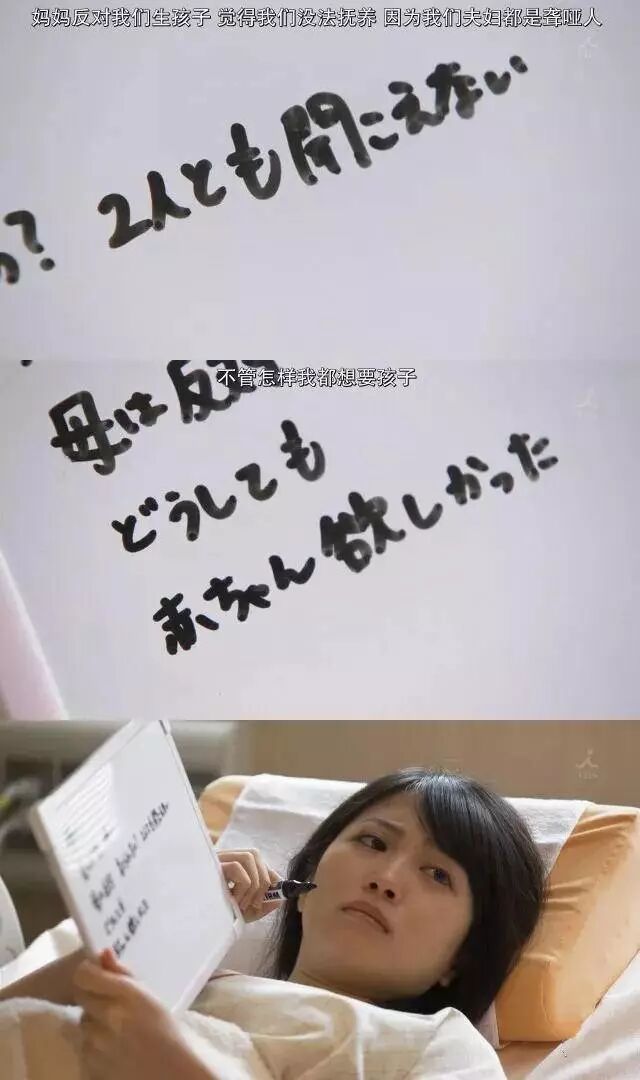 妈妈反对我们生孩子 觉得我们没法抚养 因为我们夫妇都是聋哑人
っ? 2人とも聞こえない
不管怎样我都想要孩子
母は反対
どうしても
赤ちゃん欲しかった